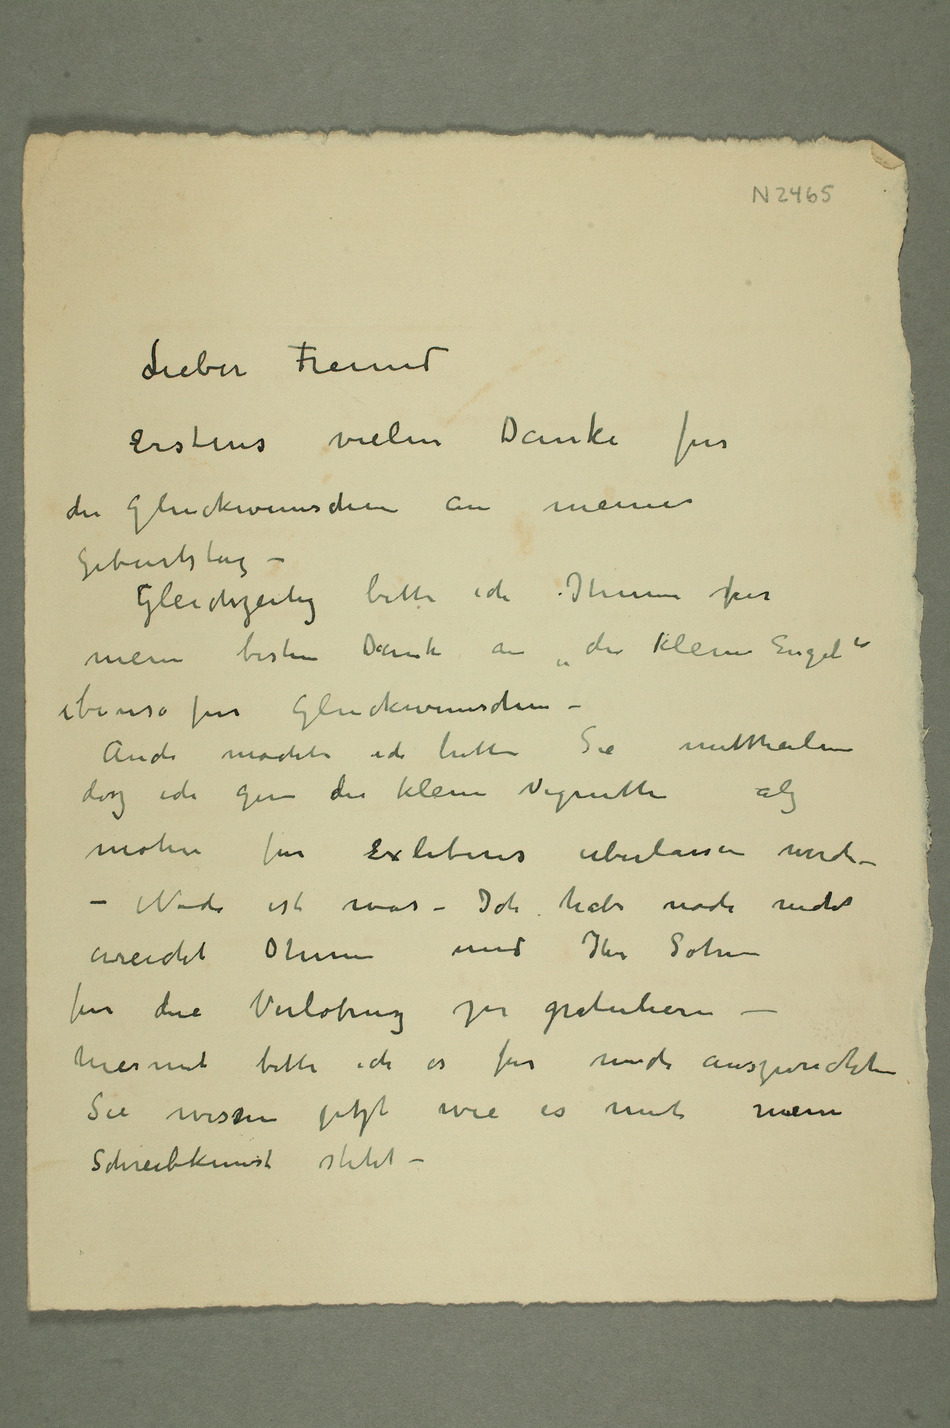 N 2465
Lieber Freund
Erstens vielen Danke für
die Glückwunschen an meiner
Geburtstag –
Gleichzeitig bitte ich Ihnen für
meine besten Dank an „die kleine Engel“
ebenso für Glückwunschen –
Auch möchte ich bitte Sie mittheilen
dasz ich gern die kleine Vignette als
motiv für Exlibris überlassen werde
– Noch ist was – Ich habe noch nicht
erreicht Ihnen und Ihr Sohn
für die Verlobung zu gratulieren –
hiermit bitte ich es für mich auszurichten
Sie wissen jetzt wie es mit meine
Schreibkunst steht –